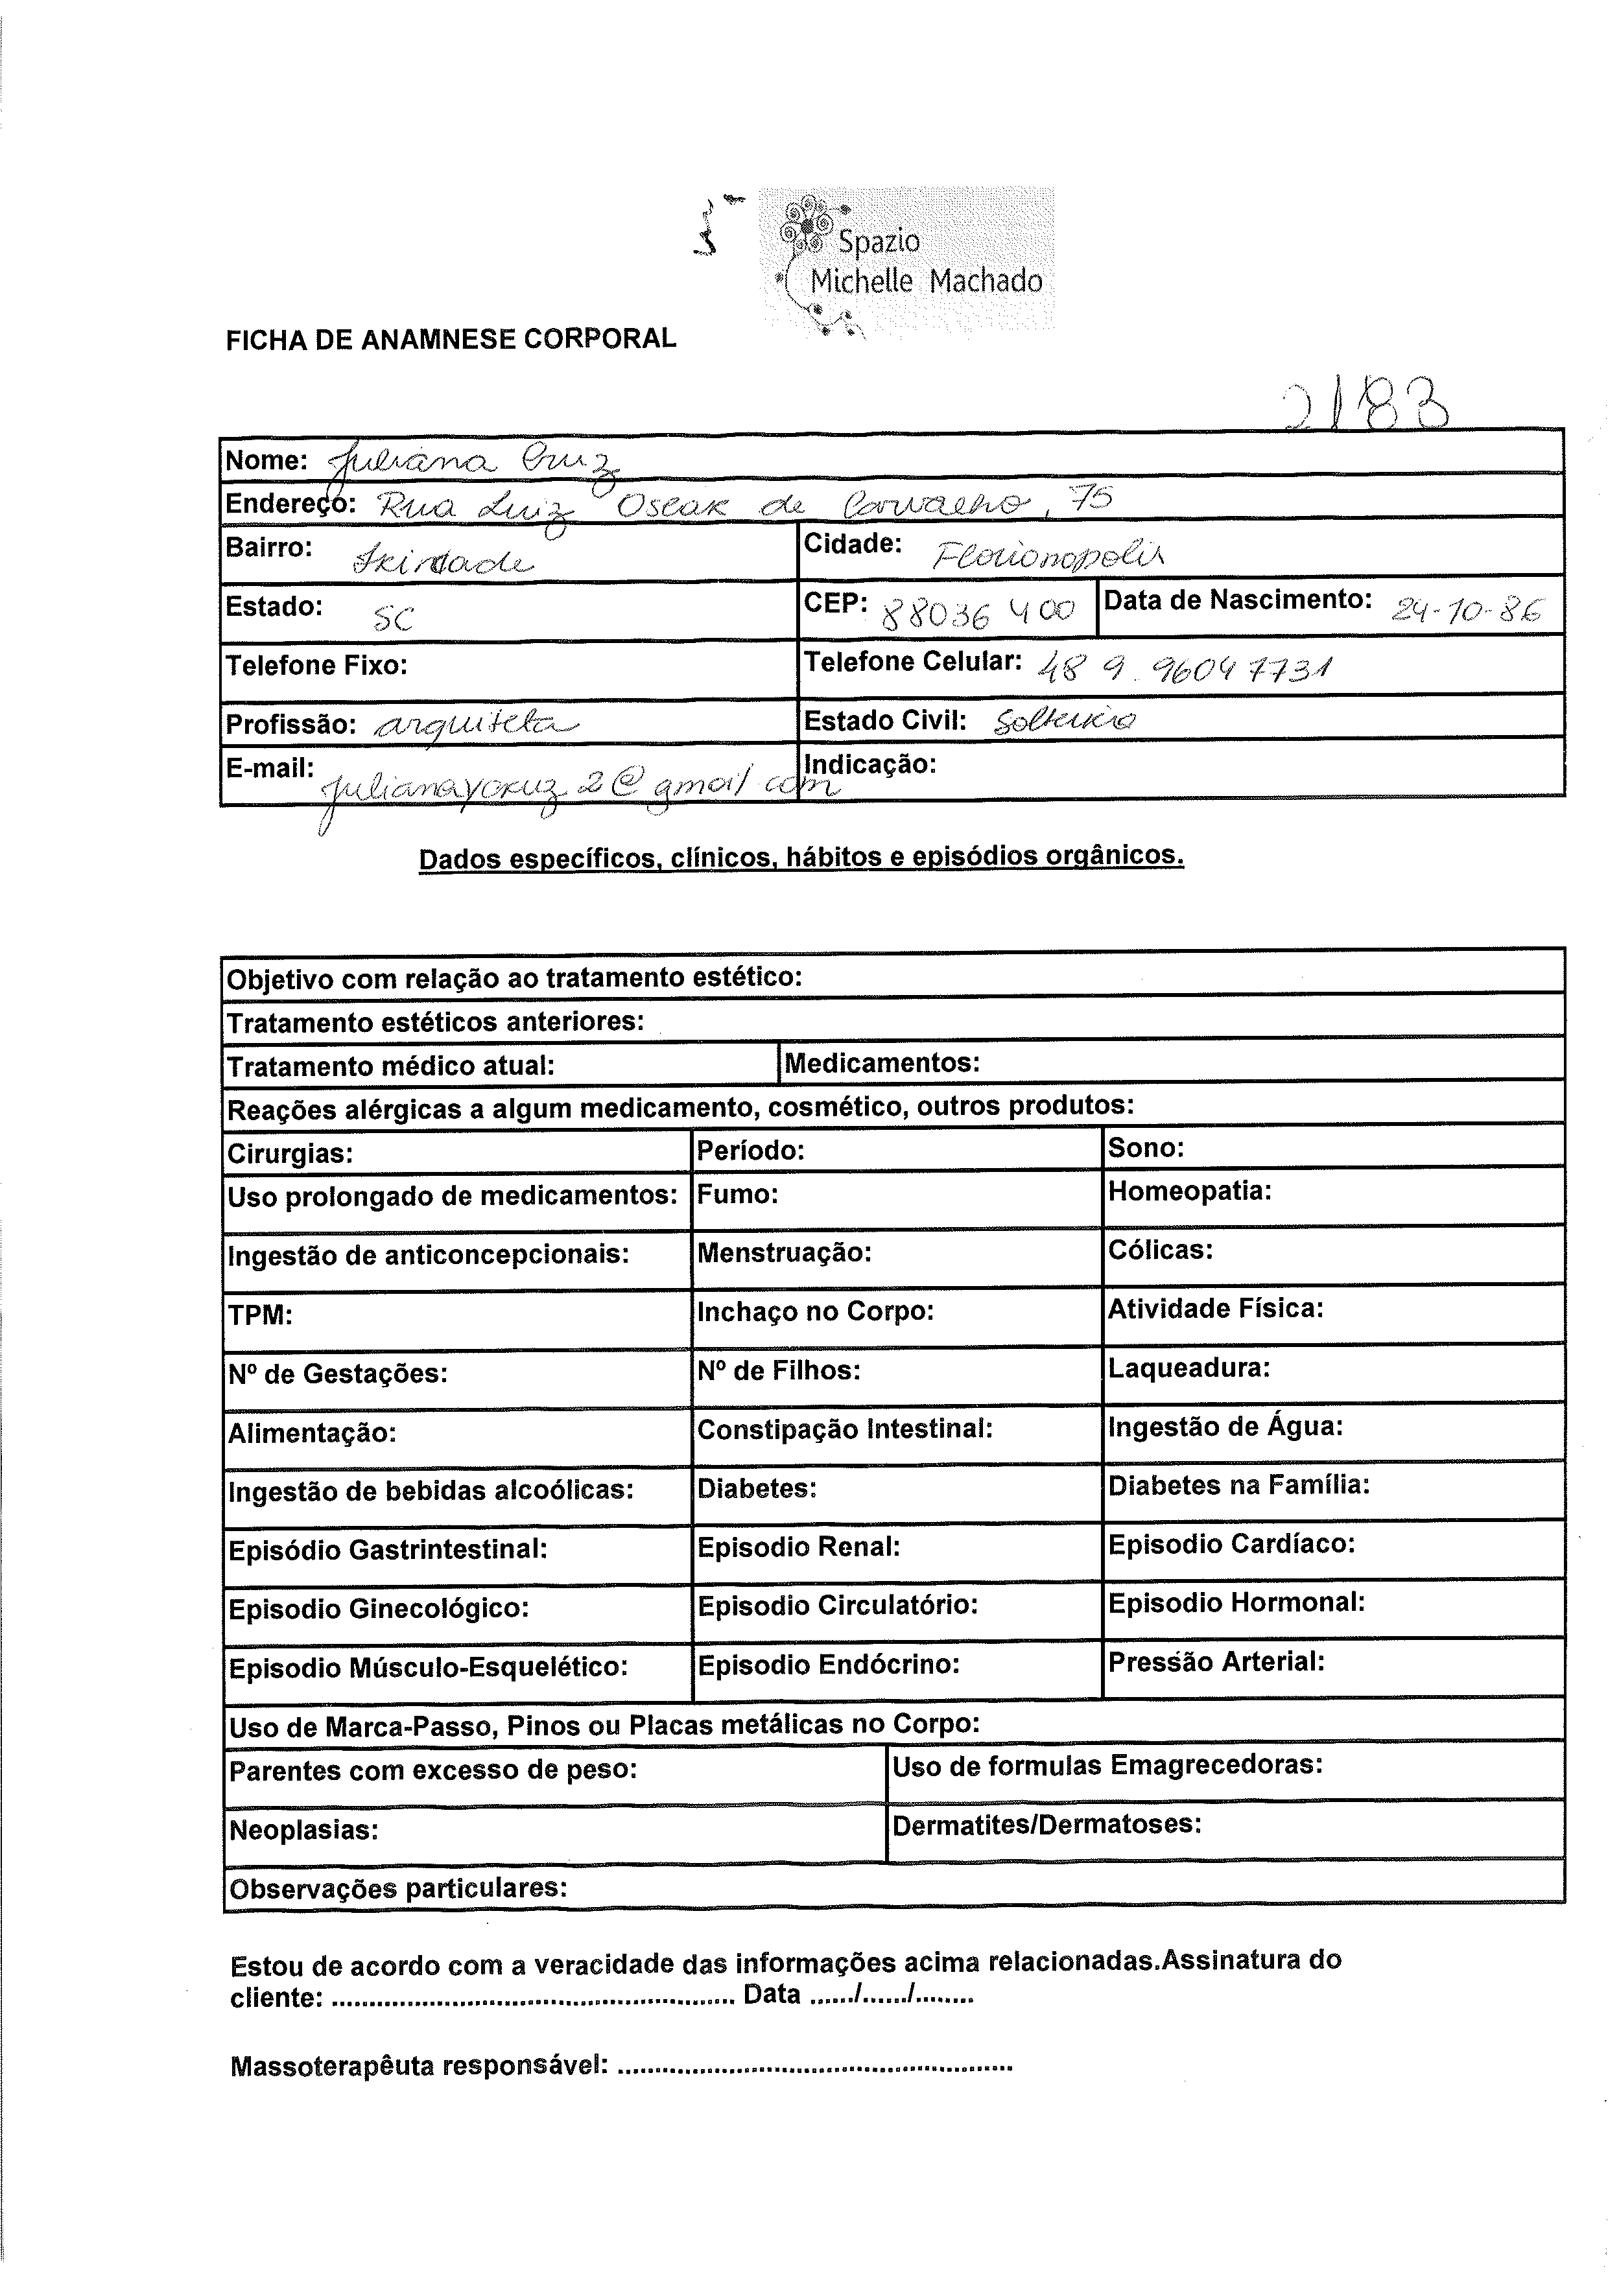 Spazio
Michelle Machado
FICHA DE ANAMNESE CORPORAL
2183
Nome: Juliana Cruz
Endereço: Rua Luiz Oscar de Carvalho, 75
Bairro: Trindade Cidade: Florionopolis
Estado: SC CEP: 88036 400 Data de Nascimento: 24-10-86
Telefone Fixo: Telefone Celular: 48 9. 9604 7731
Profissão: arquiteta Estado Civil: Solteira
E-mail: julianaycruz2@gmail.com Indicação:
Dados específicos, clínicos, hábitos e episódios orgânicos.
Objetivo com relação ao tratamento estético:
Tratamento estéticos anteriores:
Tratamento médico atual: Medicamentos:
Reações alérgicas a algum medicamento, cosmético, outros produtos:
Cirurgias: Período: Sono:
Uso prolongado de medicamentos: Fumo: Homeopatia:
Ingestão de anticoncepcionais: Menstruação: Cólicas:
TPM: Inchaço no Corpo: Atividade Física:
Nº de Gestações: Nº de Filhos: Laqueadura:
Alimentação: Constipação Intestinal: Ingestão de Água:
Ingestão de bebidas alcoólicas: Diabetes: Diabetes na Família:
Episódio Gastrintestinal: Episodio Renal: Episodio Cardíaco:
Episodio Ginecológico: Episodio Circulatório: Episodio Hormonal:
Episodio Músculo-Esquelético: Episodio Endócrino: Pressão Arterial:
Uso de Marca-Passo, Pinos ou Placas metálicas no Corpo:
Parentes com excesso de peso: Uso de formulas Emagrecedoras:
Neoplasias: Dermatites/Dermatoses:
Observações particulares:
Estou de acordo com a veracidade das informações acima relacionadas.Assinatura do
cliente: ...................................................... Data ....../....../........
Massoterapêuta responsável: .....................................................